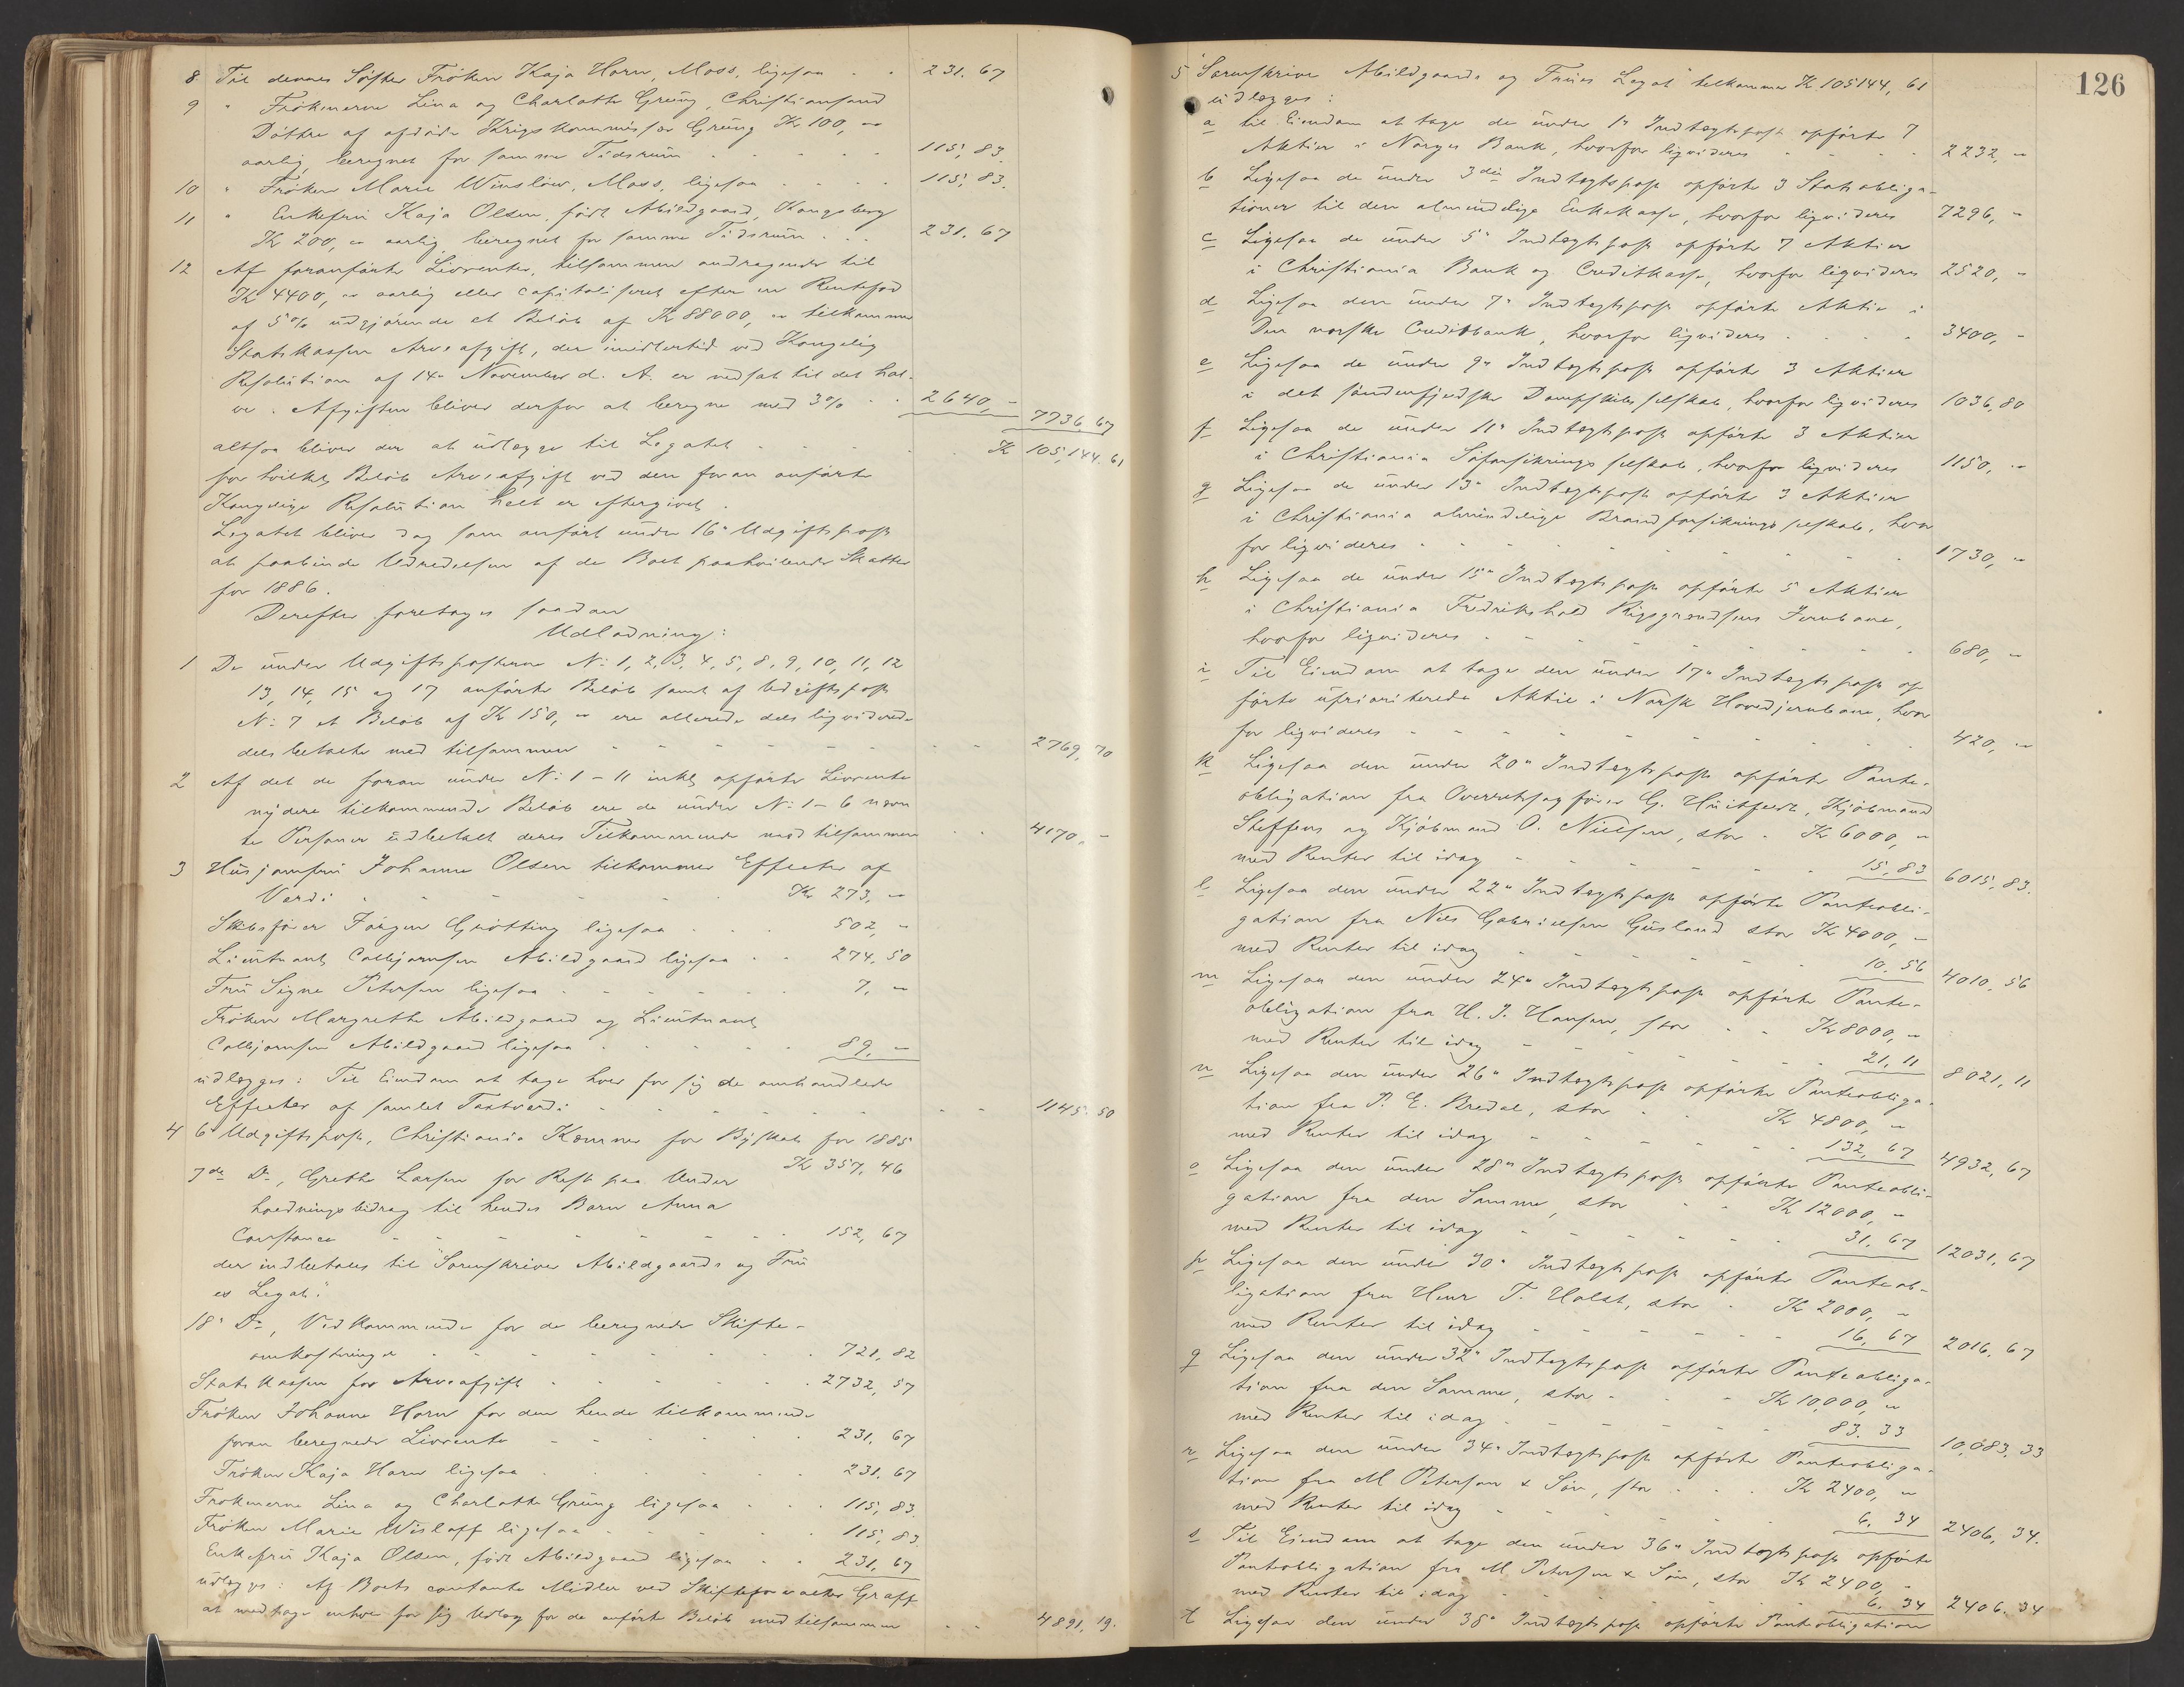 8. Til dennes Søster Frøken Kaja Horn, Moss, ligesaa . . 231. 67
9 " Frøknerne Lina og Charlotte Grüng, Christiansund
Døttre af afdøde Krigskommissær Grüng Kr 100, "
aarlig, beregnet for samme Tidsrum . . . . . 115, 83.
10 " Frøken Marie Winslow, Moss, ligesaa . . . . 115, 83.
11 " Enkefru Kaja Olsen, født Abildgaard, Kongsberg
Kr 200, " aarlig, beregnet for samme Tidsrum . . . 231. 67
12 Af foranførte Livrenter, tilsammen andragende til
Kr 4400, " aarlig eller capitaliseret efter en Rentefod
af 5% udgjørende et Beløb af Kr 88000, " tilkommer
Statskassen Arveafgift, der imidlertid ved Kongelig
Resolution af 14de November d. A. er nedsat til det hal-
ve. Afgiften bliver derfor at beregne med 3% . . 2640, - 7736 67
altsaa bliver der at udlægge til Legatet . . . . . Kr 105,144. 61
for hvilket Beløb Arveafgift ved den foran anførte
Kongelige Resolution helt er eftergivet.
Legatet bliver dog som anført under 16de Udgiftspost
at paabinde Udredelsen af de Boet paahvilende Skatter
for 1886.
Derefter foretages saadan
Udlodning:
1 De under Udgiftsposterne No 1, 2, 3, 4, 5, 8, 9, 10, 11, 12
13, 14, 15 og 17 anførte Beløb samt af Udgiftspost
No 7 et Beløb af Kr 150, " ere allerede dels ligviderede
dels betalte med tilsammen - - - - - - - 2769, 70
2 Af det de foran under No 1 - 11 inkl. opførte Livrente
nydere tilkommende Beløb ere de under No 1 - 6 nævn
te Personer udbetalt deres Tilkommende med tilsammen . . 4170, -
3 Husjomfru Johanne Olsen tilkommer Effecter af
Værdi . . . . . . Kr 273, "
Skibsfører Jørgen Grøtting ligesaa . . . 502, "
Lieutnant Colbjørnsen Abildgaard ligesaa . . 274. 50
Fru Signe Petersen ligesaa . . . . . 7, "
Frøken Margrethe Abildgaard og Lieutnant
Colbjørnsen Abildgaard ligesaa . . . . . 89, "
udlægges: Til Eiendom at tage hver for sig de omhandlede
Effecter af samlet Taxtværdi - - - - - - - 1145. 50
4 6te Udgiftspost, Christiania Kæmner for Byskat for 1885
Kr 357, 46
7de Do, Grethe Larsen for Rest paa Under
holdningsbidrag til hendes Barn Anna
Constance - - - - - - - 152, 67
der indbetales til "Sorenskriver Abildgaards og Fru
es Legat".
18de Do, Vedkommende for de beregnede Skifte-
omkostninger . . . . . . . 721, 82
Statskassen for Arveafgift . . . . . . 2732, 57
Frøken Johanne Horn for den hende tilkommende
foran beregnede Livrente . . . . . . 231, 67
Frøken Kaja Horn ligesaa . . . . . 231, 67
Frøknerne Lina og Charlotte Grüng ligesaa . . . 115, 83.
Frøken Marie Wisloff ligesaa . . . . . 115, 83.
Enkefru Kaja Olsen, født Abildgaard ligesaa . . 231, 67
udlægges: Af Boets contante Midler ved Skifteforvalter Graff
at modtage enhver for sig Udlæg for de anførte Beløb med tilsammen . . 4891, 19.
126
5 "Sorenskriver Abildgaards og Frues Legat" tilkommer Kr 105144, 61
udlægges:
a til Eiendom at tage de under 1ste Indtægtspost opførte 7
Aktier i Norges Bank, hvorfor ligvideres . . . . 2232, "
b Ligesaa de under 3die Indtægtspost opførte 3 Statsobliga-
tioner til den almindelige Enkekasse, hvorfor ligvideres 7296, "
c Ligesaa de under 5te Indtægtspost opførte 7 Aktier
i Christiania Bank og Creditkasse, hvorfor ligvideres 2520, "
d Ligesaa den under 7de Indtægtspost opførte Aktie i
Den norske Creditbank, hvorfor ligvideres . . . . 3400, "
e Ligesaa de under 9de Indtægtspost opførte 3 Aktier
i det søndenfjeldske Dampskibsselskab, hvorfor ligvideres 1036, 80
f Ligesaa de under 11te Indtægtspost opførte 3 Aktier
i Christiania Søforsikringsselskab, hvorfor ligvideres 1150, "
g Ligesaa de under 13de Indtægtspost opførte 3 Aktier
i Christiania almindelige Brandforsikringsselskab, hvor
for ligvideres . . . . . . . . 1730, "
h Ligesaa de under 15de Indtægtspost opførte 5 Aktier
i Christiania Fredrikshald Rigsgrændsens Jernbane,
hvorfor ligvideres . . . . . . . 680, "
i Til Eiendom at tage den under 17de Indtægtspost op
førte uprioriterede Aktie i Norsk Hovedjernbane, hvor
for ligvideres . . . . . . . . 420, "
k Ligesaa den under 20de Indtægtspost opførte Pante-
obligation fra Overretssagfører G. Huitfeldt, Kjøbmand
Steffens og Kjøbmand O. Nielsen, stor . Kr 6000, "
med Renter til idag . . . . . . 15, 83 6015, 83.
l Ligesaa den under 22de Indtægtspost opførte Panteobli-
gation fra Niels Gabrielsen Gusland stor Kr 4000, "
med Renter til idag . . . . . . 10, 56 4010. 56
m Ligesaa den under 24de Indtægtspost opførte Pante-
obligation fra H. J. Hansen, stor . . Kr 8000, "
med Renter til idag . . . . . . 21, 11 8021, 11
n Ligesaa den under 26de Indtægtspost opførte Panteobliga-
tion fra P. E. Bredal, stor . . . Kr 4800, "
med Renter til idag . . . . . . 132, 67 4932, 67
o Ligesaa den under 28de Indtægtspost opførte Panteobli-
gation fra den Samme, stor . . Kr 12000, "
med Renter til idag . . . . . . 31, 67 12031, 67
p Ligesaa den under 30te Indtægtspost opførte Panteob-
ligation fra Henr T. Holst, stor . Kr 2000, "
med Renter til idag . . . . . . 16, 67 2016, 67
q Ligesaa den under 32te Indtægtspost opførte Panteobliga-
tion fra den Samme, stor . . . Kr 10,000, "
med Renter til idag . . . . . . 83. 33 10,083, 33
r Ligesaa den under 34te Indtægtspost opførte Panteobliga-
tion fra M Petersen & Søn, stor . . . Kr 2400, "
med Renter til idag . . . . . . 6, 34 2406, 34.
s Til Eiendom at tage den under 36te Indtægtspost opførte
Panteobligation fra M Petersen & Søn, stor Kr 2400, "
med Renter til idag . . . . . . 6, 34 2406. 34
t Ligesaa den under 38te Indtægtspost opførte Panteobligation